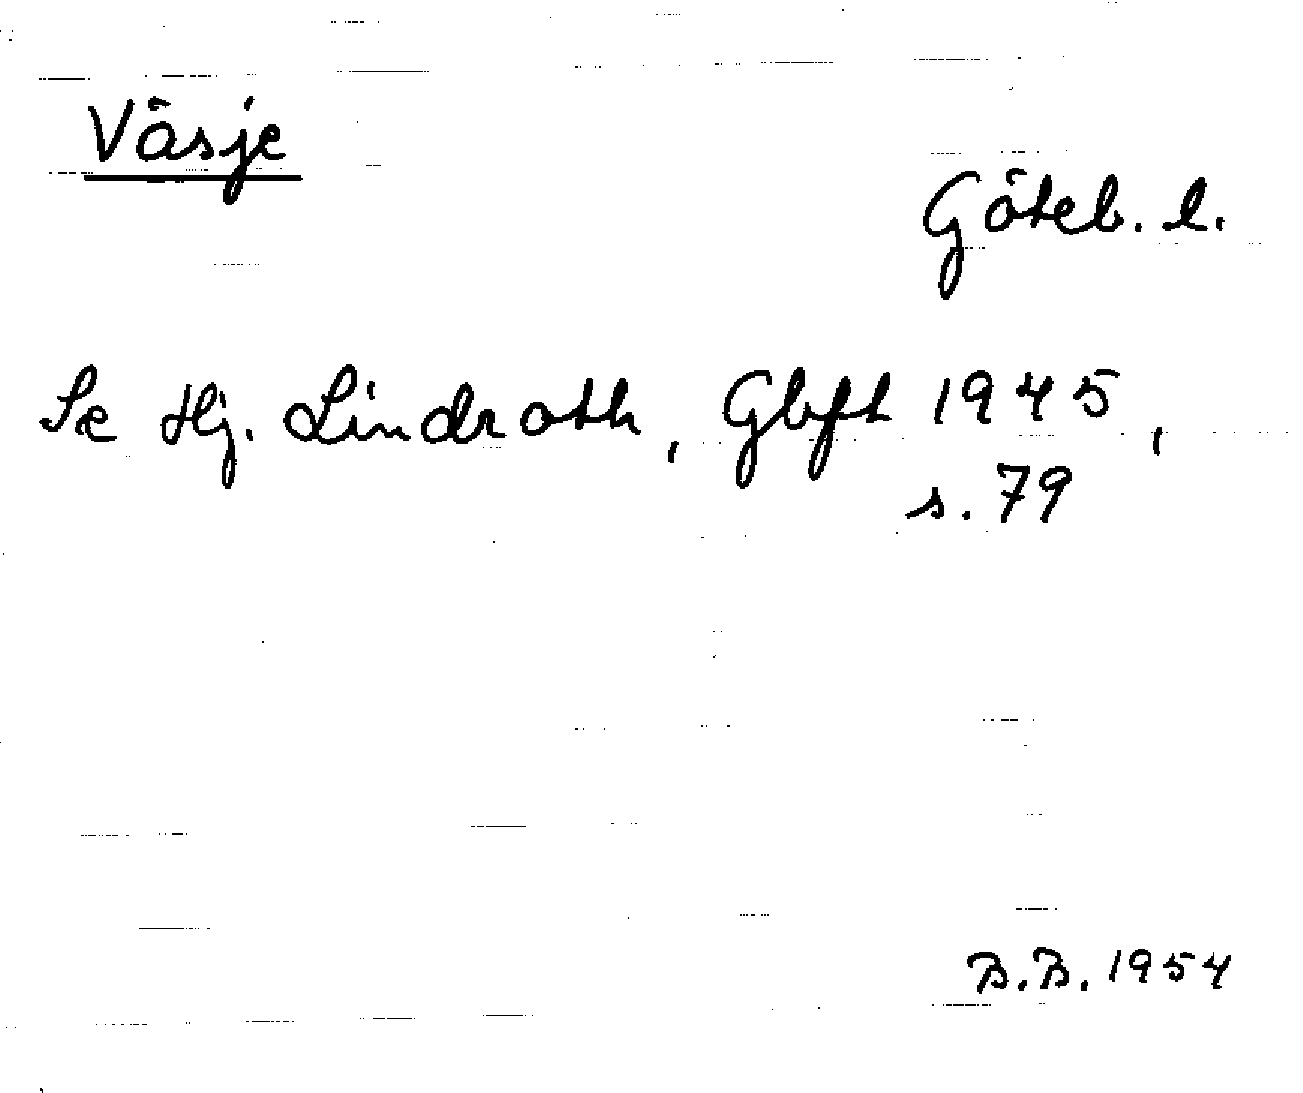 Väsje
Göteb. l.
Se Hj. Lindroth, Gbft 1945,
s. 79
B.B. 1954